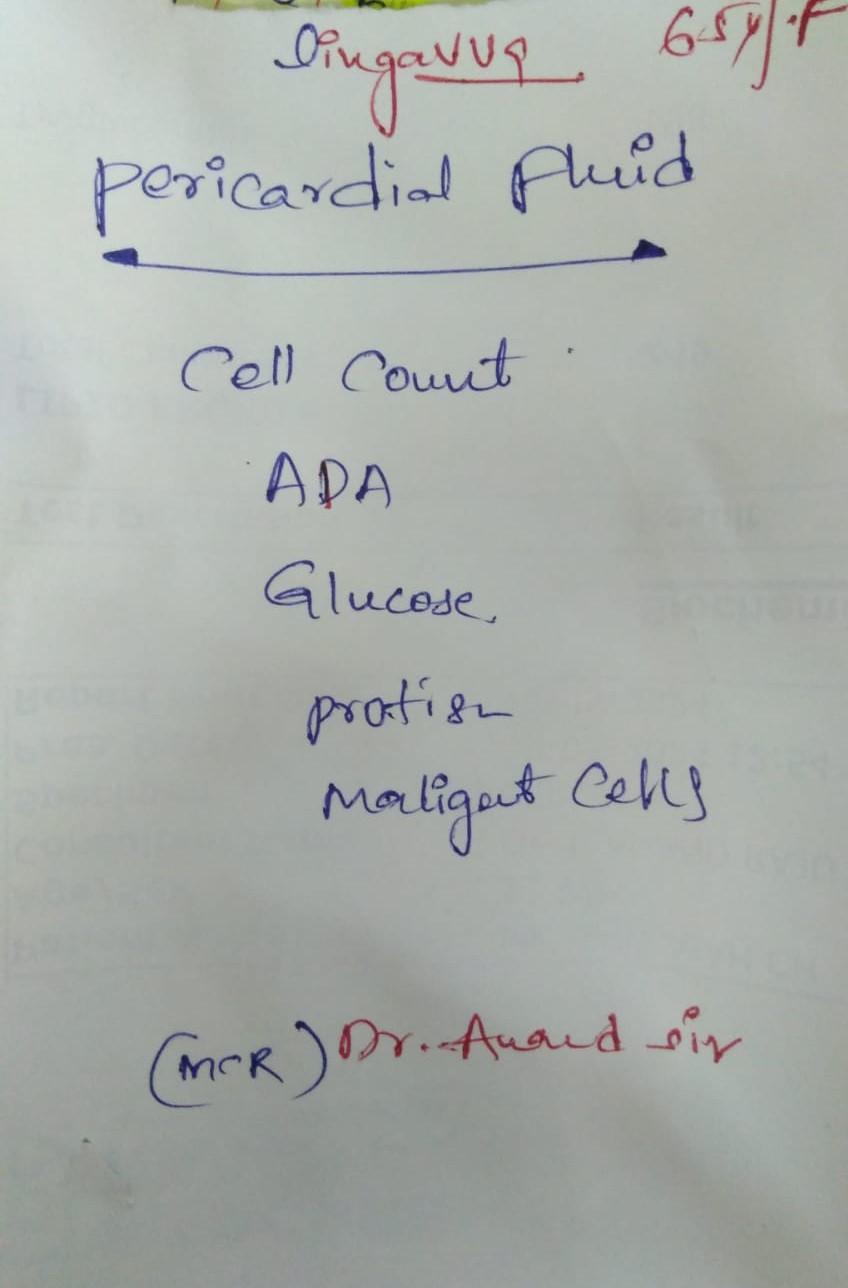 Lingavva 65y/.F
Pericardial Fluid
Cell Count
ADA
Glucose
protien
Maligent Cells
(MCR) Dr. Anand sir